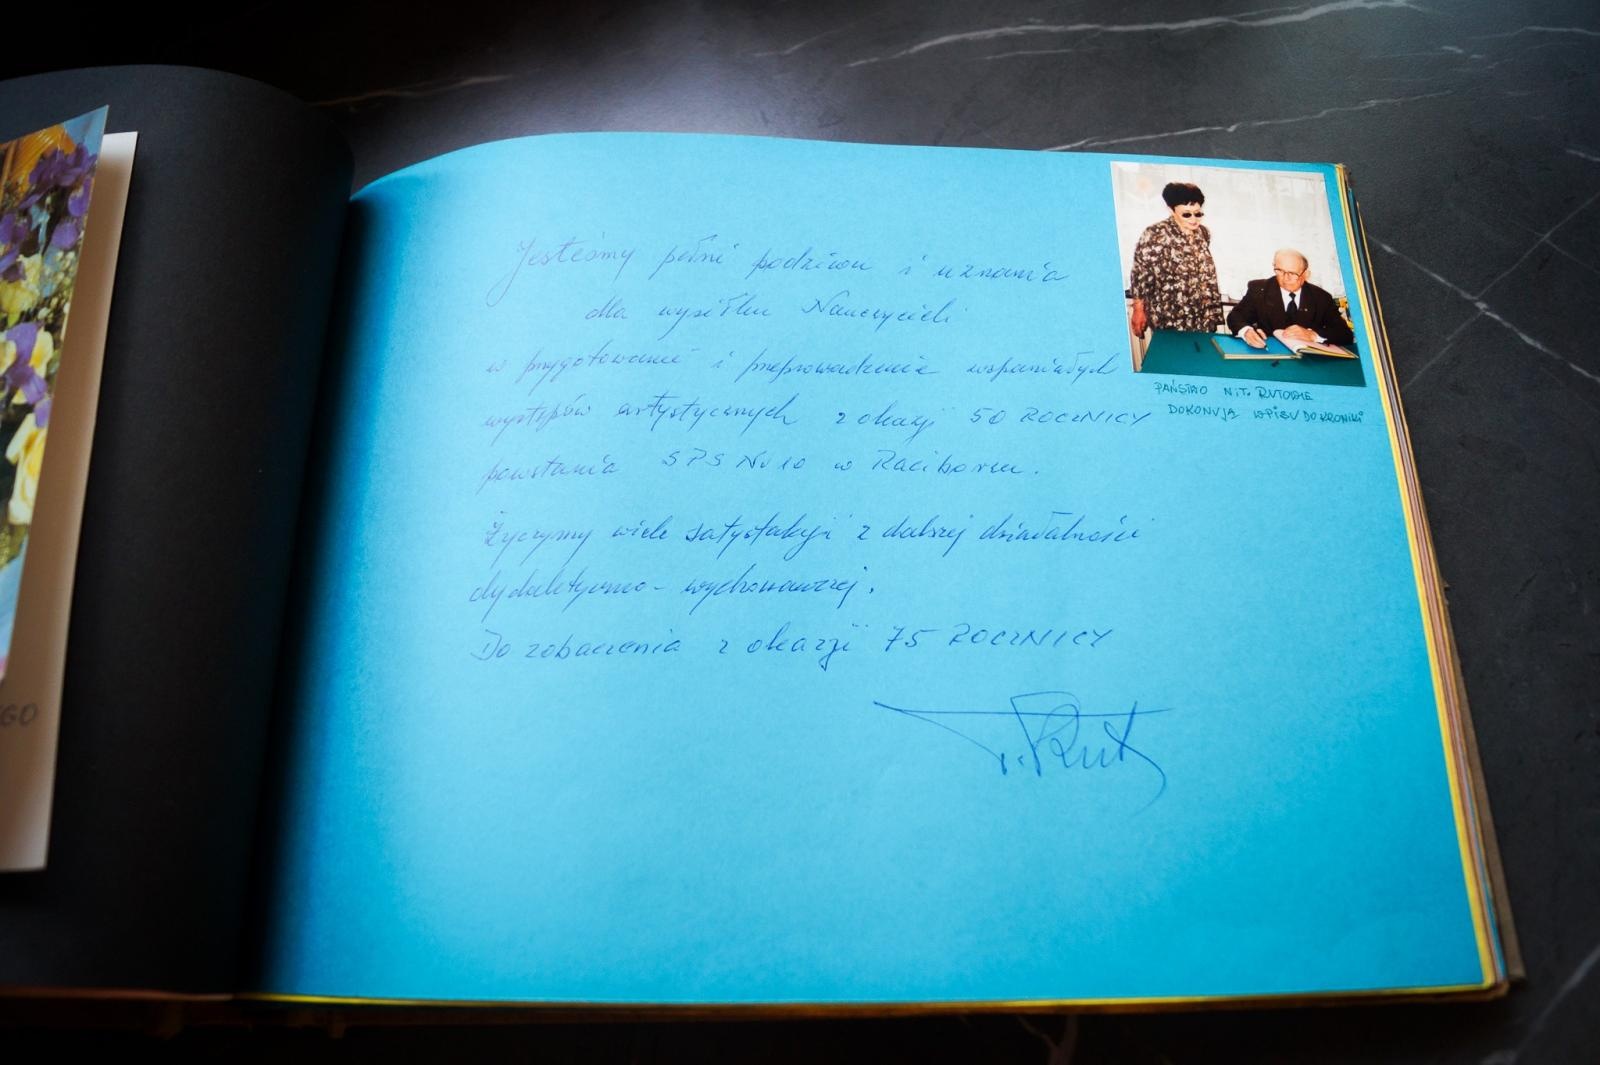 Jesteśmy pełni podziwu i uznania
dla wysiłku Nauczycieli
w przygotowanie i przeprowadzenie wspaniałych
występów artystycznych z okazji 50 ROCZNICY
powstania SPS Nr 10 w Raciborzu.
Życzymy wiele satysfakcji z dalszej działalności
dydaktyczno-wychowawczej.
Do zobaczenia z okazji 75 ROCZNICY
T. Rut
PAŃSTWO N.T. RUTOWIE
DOKONUJĄ WPISU DO KRONIKI
EGO